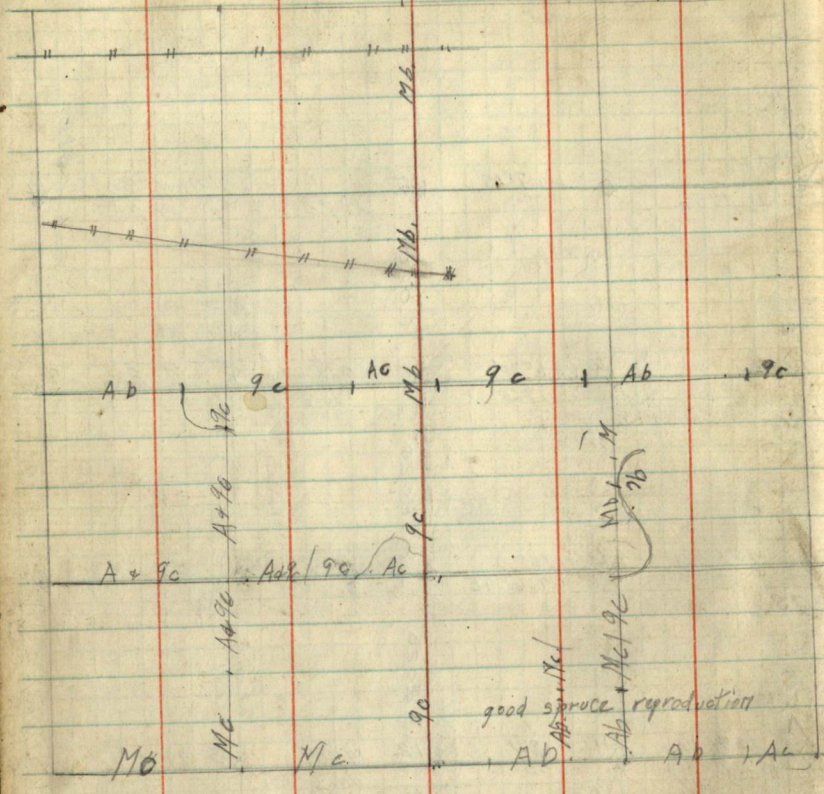 Mb
Mb
Ab 9c Ac Mb 9c Ab 9c
9c
M
A+9c
Mb
9c
A + 9c 9c Ac
A+9c
Mc / 9c
Mc
Ab
9c
good spruce reproduction
Mc Ab Ab Ac